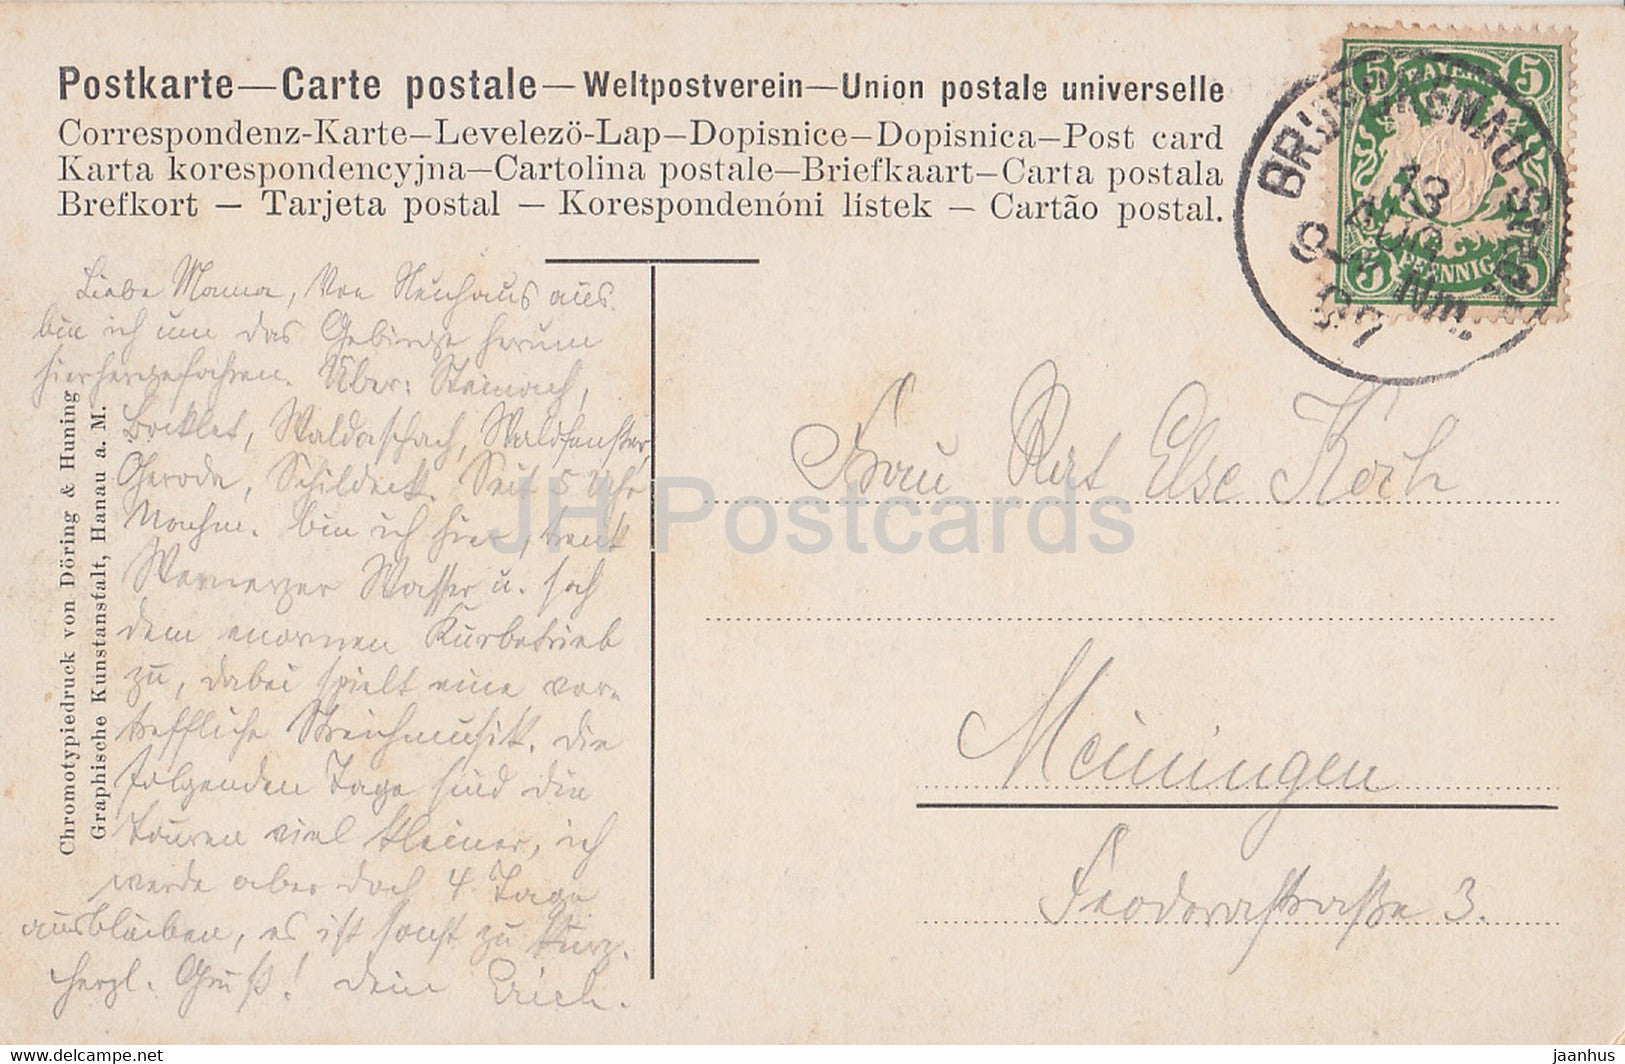 Postkarte—Carte postale—Weltpostverein—Union postale universelle
Correspondenz-Karte—Levelezö-Lap—Dopisnice—Dopisnica—Post card
Karta korespondencyjna—Cartolina postale—Briefkaart—Carta postala
Brefkort — Tarjeta postal — Korespondenóni listek — Cartão postal.
5 BAYERN 5
5 PFENNIG 5
BRÜCKENAU STADT
13 AUG
Nm.
07
Liebe Mama, Von Neuhaus aus
bin ich um das Gebirge herum
hierhergefahren. Über: Steinach,
Bocklet, Waldaschach, Waldfenster,
Geroda, Schildeck. Seit 5 Uhr
Nachm. bin ich hier, trank
Wernarzer Wasser u. sah
dem enormen Kurbetrieb
zu, dabei spielt eine vor-
treffliche Streichmusik. Die
folgenden Tage sind die
Touren viel kleiner, ich
werde aber doch 4 Tage
ausbleiben, es ist sonst zu kurz.
Herzl. Gruß! Dein Erich.
Frau Rat Else Koch
Meiningen
Feodorastraße 3.
Chromotypiedruck von Döring & Huning
Graphische Kunstanstalt, Hanau a. M.
JH Postcards
www.delcampe.net
jaanhus